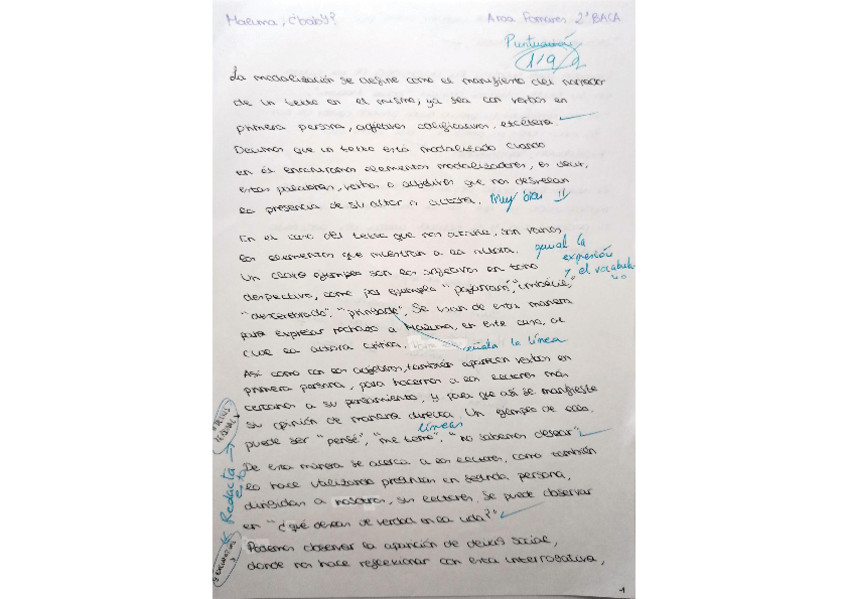 Maluma, ¿baby?
Aroa Fornares 2ºBACA
Puntuación
1'9/2
La modalización se define como el manifiesto del narrador
de un texto en el mismo, ya sea con verbos en
primera persona, adjetivos calificativos, etcétera.
Decimos que un texto está modalizado cuando
en él encontramos elementos modalizadores, es decir,
estas palabras, verbos o adjetivos que nos desvelan
la presencia de su autor o autora. Muy bien !!
En el caso del texto que nos atañe, son varios
los elementos que muestran a la autora. genial la
expresión
y el vocabulario
Un claro ejemplo son los adjetivos en tono
despectivo, como por ejemplo "pajarraco", "imbécil",
"descerebrado", "pringado". Se usan de esta manera
para expresar rechazo a Maluma, en este caso, al
cual la autora critica.
señala la línea
Así como con los adjetivos, también aparecen verbos en
primera persona, para hacernos a los lectores más
cercanos a su pensamiento, y para que así se manifieste
su opinión de manera directa. Un ejemplo de ello
líneas
puede ser "pensé", "me temo", "no sabemos desear".
De esta manera se acerca a los lectores, como también
lo hace utilizando preguntas en segunda persona,
dirigidas a nosotros, sus lectores. Se puede observar
en "¿qué deseas de verdad en la vida?"
Podemos observar la aparición de deixis social,
donde nos hace reflexionar con esta interrogativa,
Redacta esto